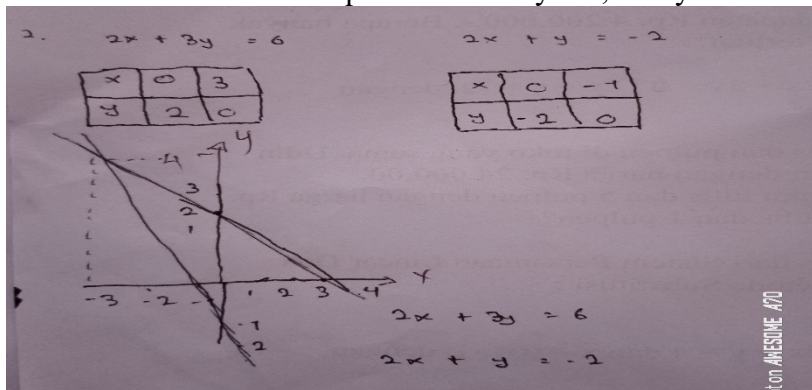 2. 2x + 3y = 6 2x + y = -2
x 0 3 x 0 -1
y 2 0 y -2 0
4 y
3
2
1
-3 -2 - 1 2 3 4 x
-1
-2
2x + 3y = 6
2x + y = -2
ton AWESOME A70